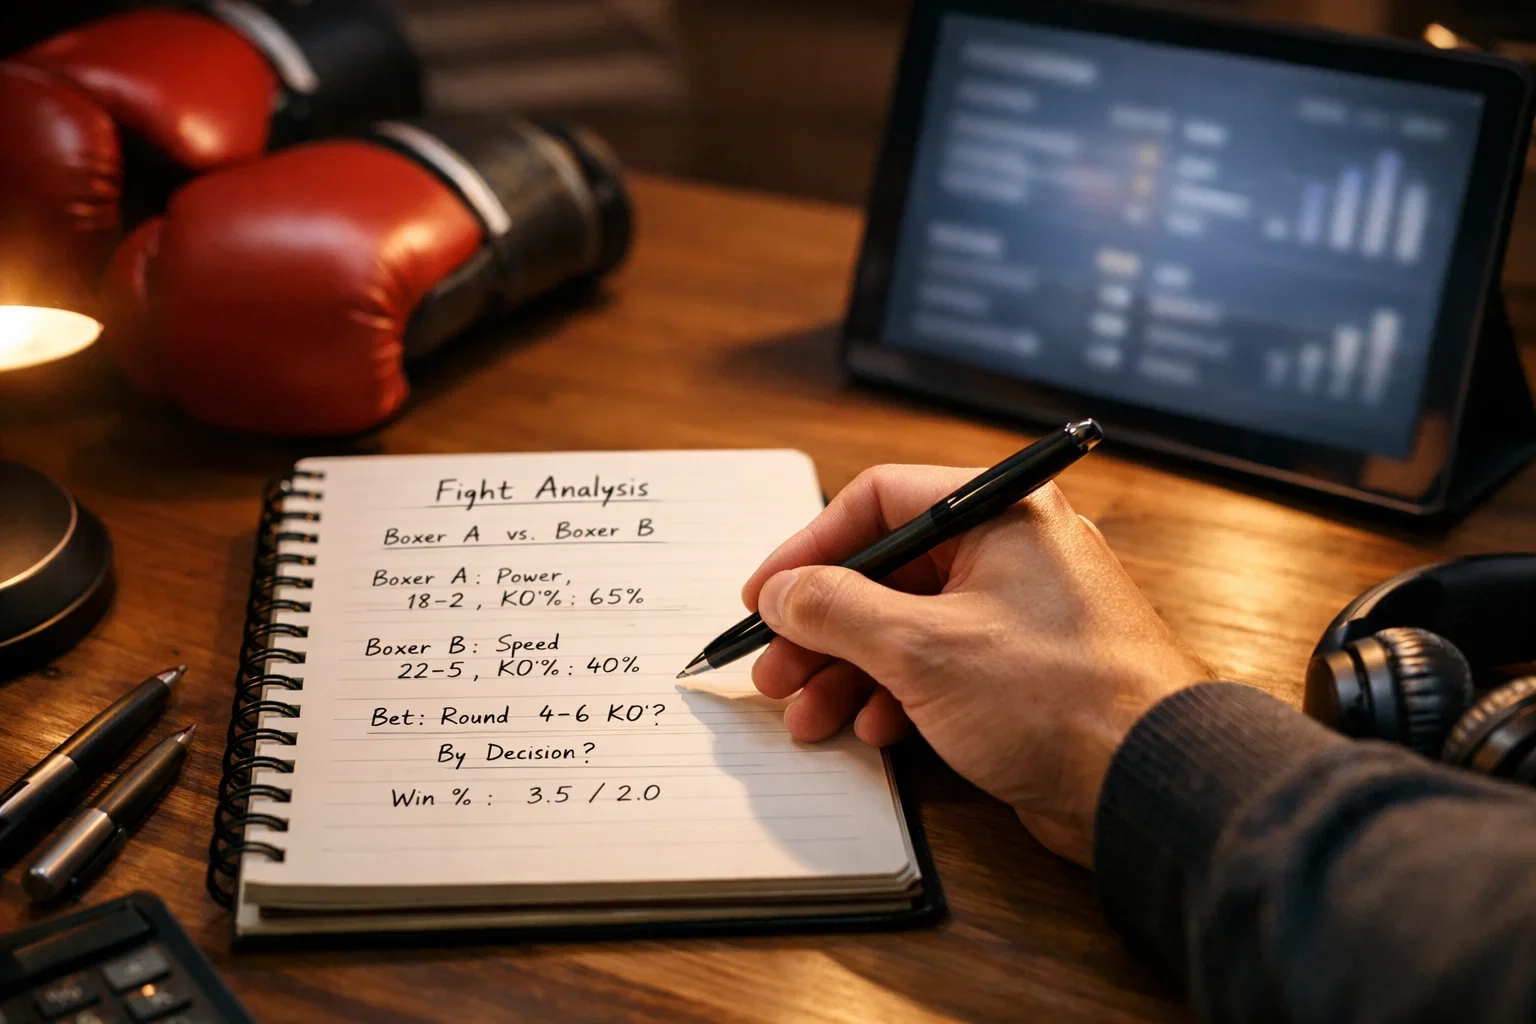 Fight Analysis
Boxer A vs. Boxer B
Boxer A: Power,
18-2, KO'%: 65%
Boxer B: Speed
22-5, KO'%: 40%
Bet: Round 4-6 KO'?
By Decision?
Win %: 3.5 / 2.0